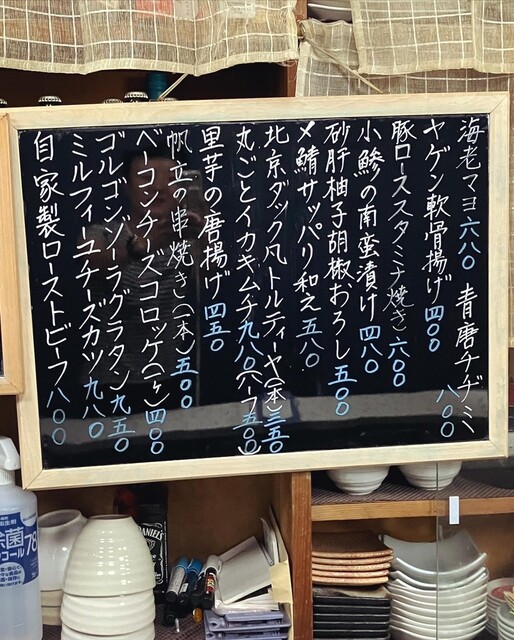 海老マヨ六八〇 青唐チヂミ八〇〇
ヤゲン軟骨揚げ四〇〇
豚ローススタミナ焼き六〇〇
小鯵の南蛮漬け四八〇
砂肝柚子胡椒おろし五〇〇
〆鯖サッパリ和え五八〇
北京ダック凡トルティーヤ(一本)三五〇
丸ごとイカキムチ九八〇(ハーフ五〇〇)
里芋の唐揚げ四五〇
帆立の串焼き(一本)五〇〇
ベーコンチーズコロッケ(ケ)四〇〇
ゴルゴンゾーラグラタン九五〇
ミルフィーユチーズカツ九八〇
自家製ローストビーフ八〇〇
除菌
アルコール78
JACK DANIEL'S